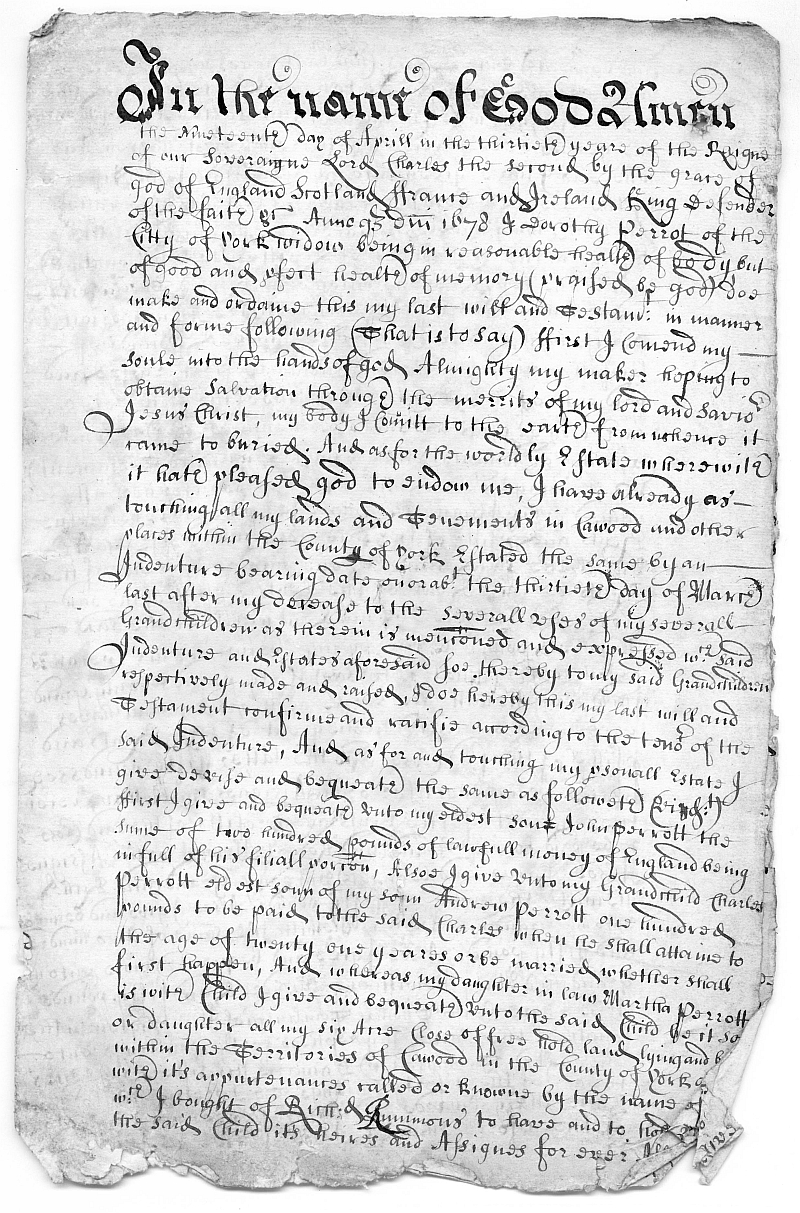 In the name of God Amen
the Nineteenth day of Aprill in the thirtieth yeare of the Reigne
of our Soveraigne Lord Charles the second by the grace of
god of England Scotland ffrance and Ireland King Defender
of the faith &c Annoq dm 1678 I Dorothy Perrot of the
Citty of York widow being in reasonable health of body but
of good and pfect health of memory (praised be god) doe
make and ordaine this my last will and Testamt in manner
and forme following (That is to say) ffirst I Comend my
soule into the hands of god Almighty my maker hoping to
obtaine Salvation through the merrits of my lord and Savior
Jesus Christ, my body I Comitt to the earth from whence it
came to buried; And as for the worldly Estate wherewith
it hath pleased god to endow me, I have already as
touching all my lands and Tenements in Cawood and other
places within the County of york Estated the same by an
Indenture bearing date on or abt the thirtieth day of March
last after my decease to the severall uses of my severall
Grandchildren as therein is mencioned and expressed wch said
Indenture and Estates aforesaid soe thereby to my said Grandchildren
respectively made and raised, I doe hereby this my last will and
Testament confirme and ratifie according to the tenor of the
said Indenture, And as for and touching my psonall Estate I
give devise and bequeath the same as followeth
ffirst I give and bequeath unto my eldest sone John Perrott the
sume of two hundred pounds of lawfull money of England being
in full of his filiall porcon, Alsoe I give unto my Grandchild Charles
Perrott eldest sonn of my sonn Andrew Perrott one hundred
pounds to be paid to the said Charles when he shall attaine to
the age of twenty one yeares or be married whether shall
first happen, And whereas my daughter in law Martha Perrott
is with Child I give and bequeath unto the said Child be it son
or daughter all my six Acre Close of free hold land lying and
within the Territories of Cawood in the County of York
with it's appurtenances called or knowne by the name of
wch I bought of Richd to have and to hold
the said Child its heires and Assignes for ever.